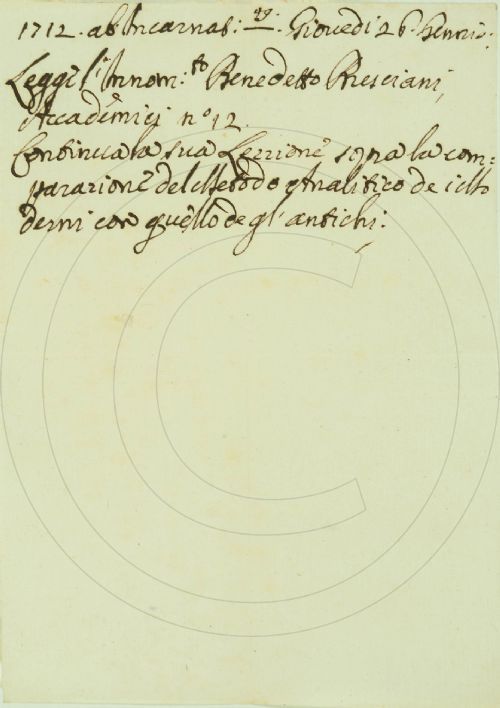 1712. ab Incarnat: ne. Giovedi 26. Genn:
Leggi l'Innom:to Benedetto Bresciani,
Accademici n° 12.
Continua la sua Lezzione sopra la com=
parazione del Metodo Analitico de i Mo
derni con quello degl'antichi.